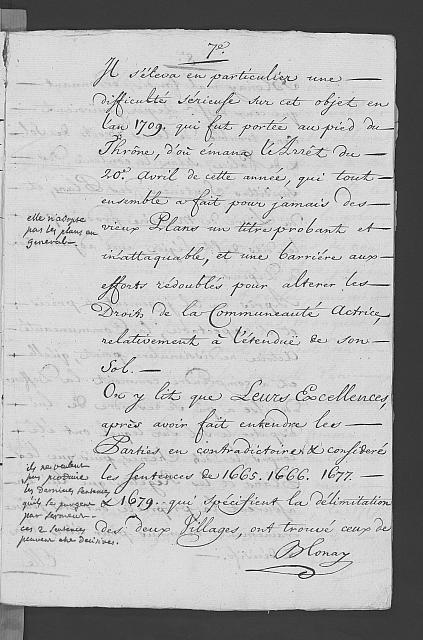 7.e
Il s'éleva en particulier une —
difficulté sérieuse sur cet objet en
l'an 1709. qui fut portée au pied du
Thrône, d'où émana l'Arrêt du —
20.e Avril de cette année, qui tout —
ensemble a fait pour jamais des —
vieux Plans un titre probant et
inattaquable, et une barriére aux —
efforts rédoublés pour alterer les —
Droits de la Communeauté Actrice,
relativement à l'étendüe de son —
Sol. —
On y lit que Leurs Excellences,
après avoir fait entendre les —
Parties en contradictoire & consideré
les sentences de 1665. 1666. 1677. —
& 1679. qui spécifient la délimitation
des deux Villages, ont trouvé ceux de
Blonay
elle n'adopte
pas les plans en
general —
ils ne veulent
pas produire
les Dernieres sentences
qu'ils se purgent
par serment —
ces 2 sentences
peuvent etre decisives.